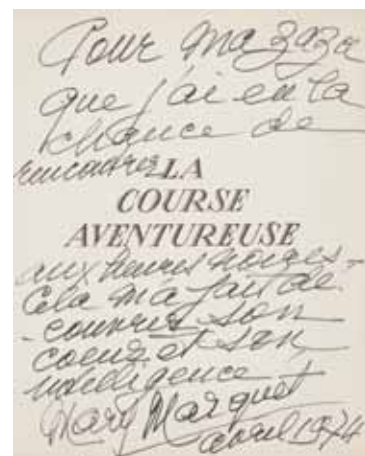 Pour ma Zaza
que j'ai eu la
chance de
rencontrer LA
COURSE
AVENTUREUSE
aux heures noires -
Cela m'a fait dé
- couvrir son
coeur et son
intelligence
Mary Marquet
avril 1974